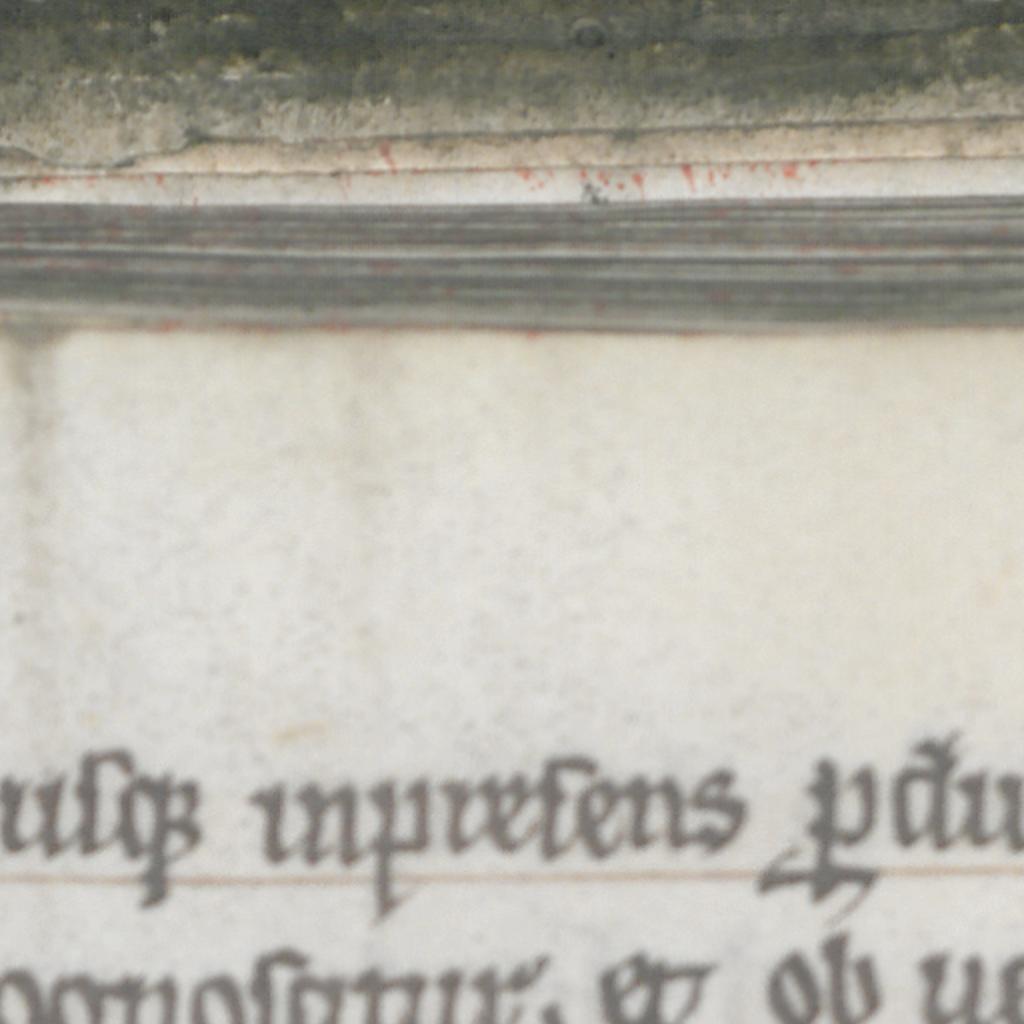 uſqꝫ inpreſens ꝑdu
ognoſatur, et ob ue